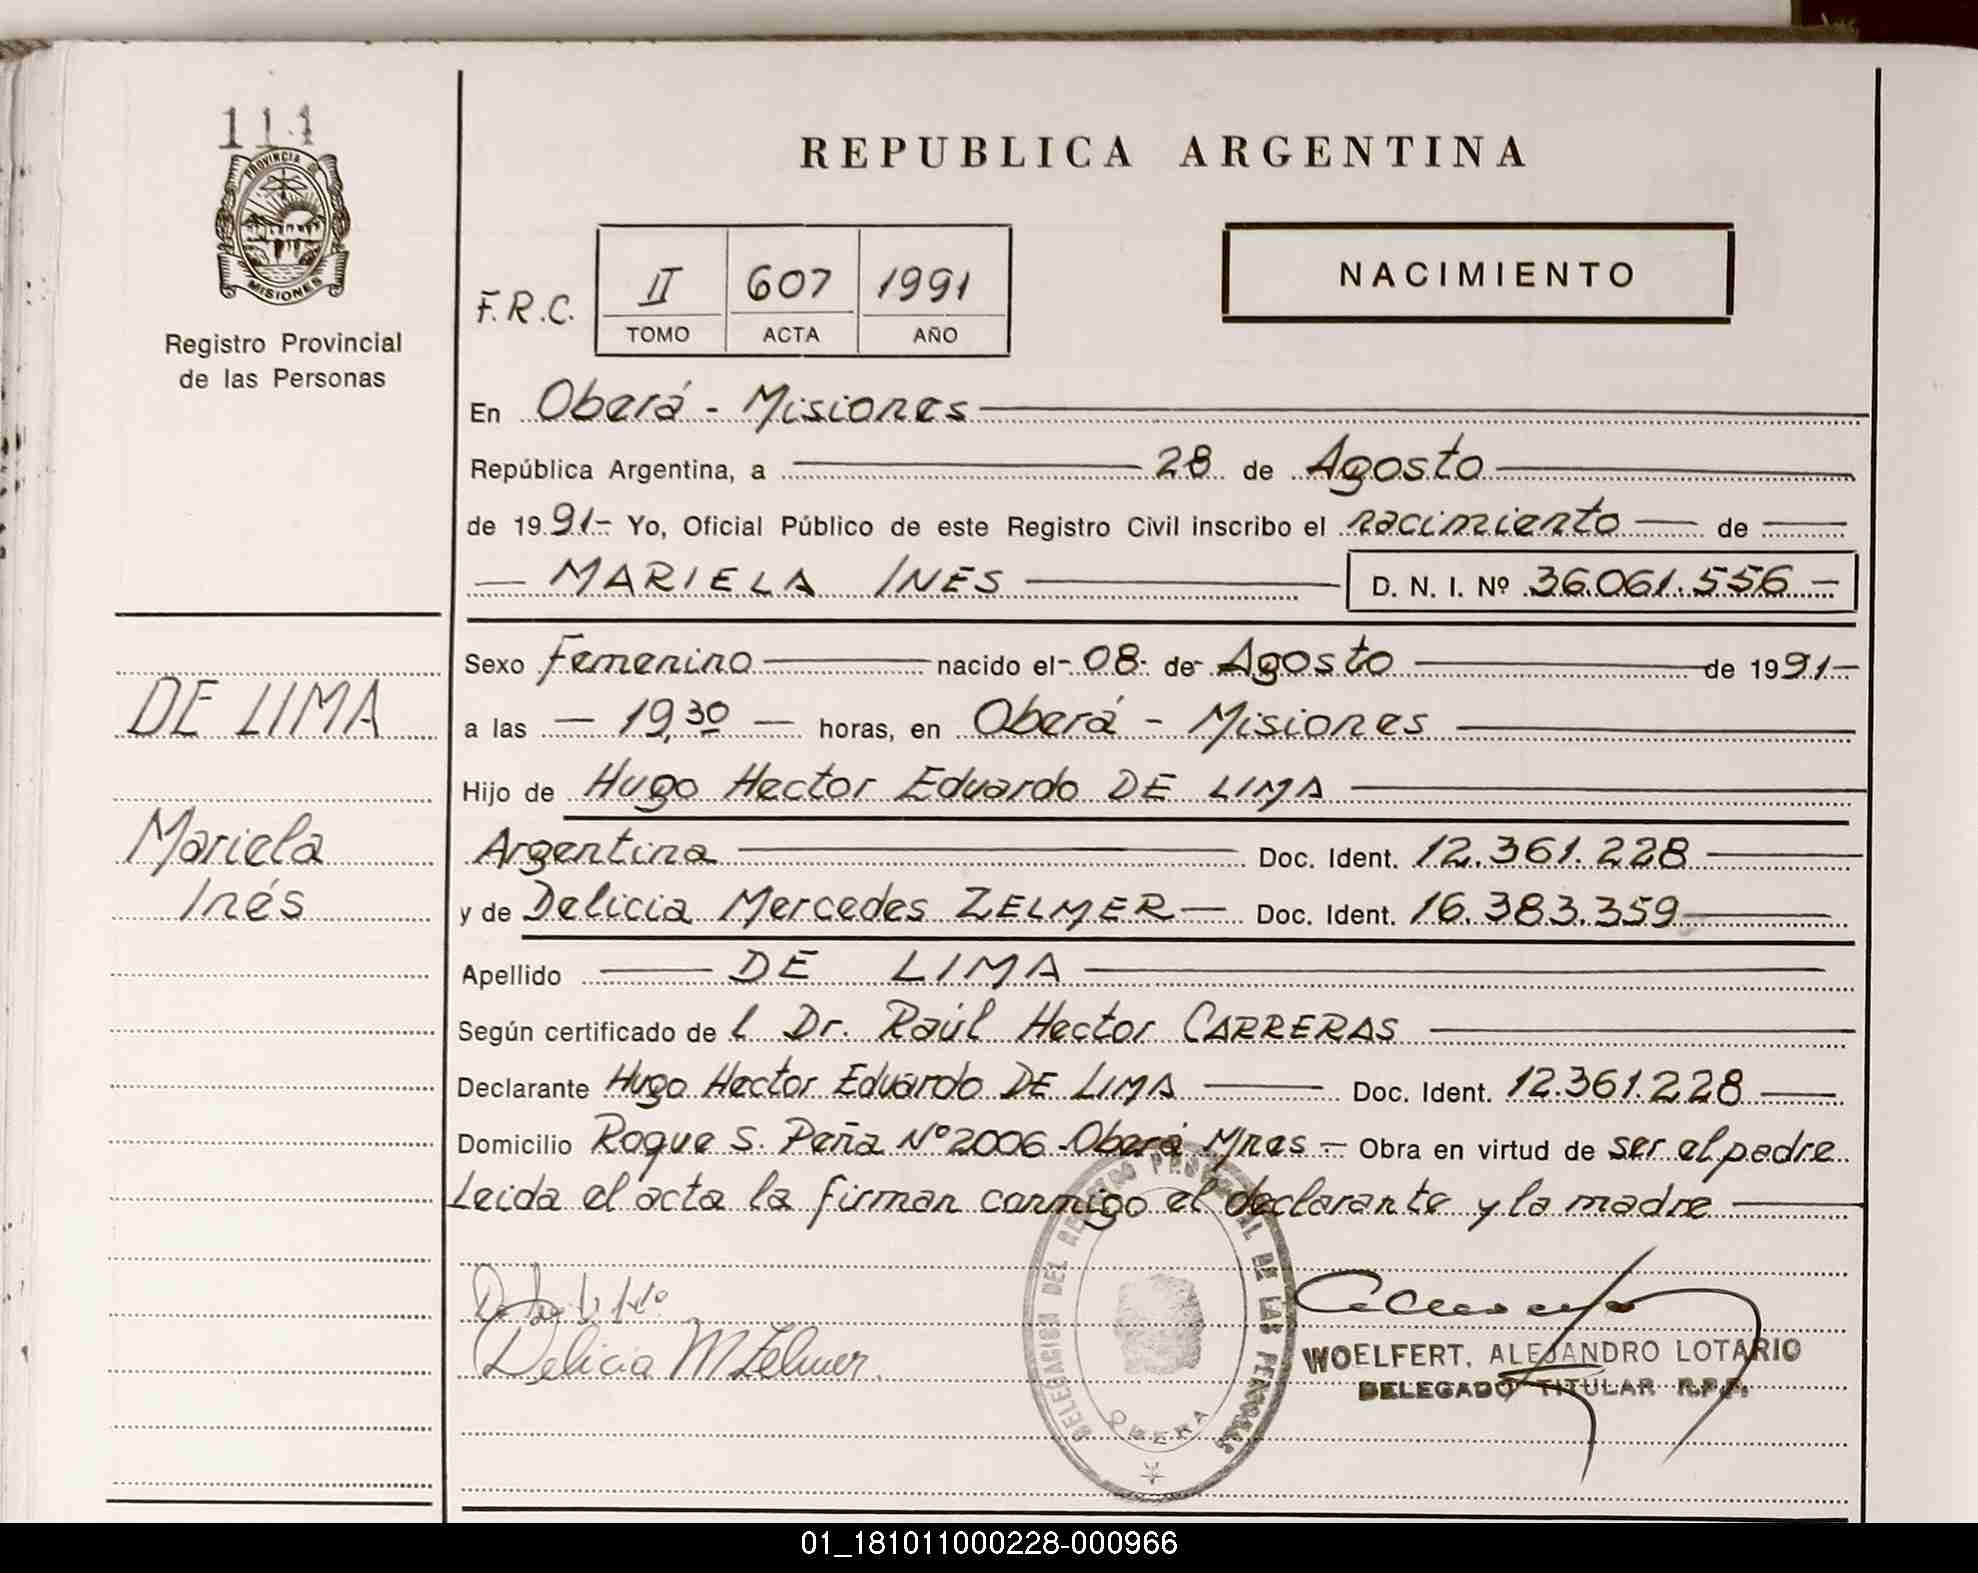 111
PROVINCIA DE
MISIONES
Registro Provincial
de las Personas
DE LIMA
Mariela
Inés
REPUBLICA ARGENTINA
F.R.C. II 607 1991
TOMO ACTA AÑO
NACIMIENTO
En Oberá - Misiones
República Argentina, a 28 de Agosto
de 1991- Yo, Oficial Público de este Registro Civil inscribo el nacimiento de
MARIELA INES D. N. I. Nº 36.061.556
Sexo Femenino nacido el 08 de Agosto de 1991
a las 19,30 horas, en Oberá - Misiones
Hijo de Hugo Hector Eduardo DE LIMA
Argentina Doc. Ident. 12.361.228
y de Delicia Mercedes ZELMER Doc. Ident. 16.383.359
Apellido DE LIMA
Según certificado de l Dr. Raúl Hector CARRERAS
Declarante Hugo Hector Eduardo DE LIMA Doc. Ident. 12.361.228
Domicilio Roque S. Peña Nº 2006 Oberá Mnes Obra en virtud de ser el padre
Leida el acta la firman conmigo el declarante y la madre
Delicia M Zelmer
DELEGACION DEL REGISTRO PROVINCIAL DE LAS PERSONAS
OBERA
WOELFERT, ALEJANDRO LOTARIO
DELEGADO TITULAR R.P.P.
01_181011000228-000966